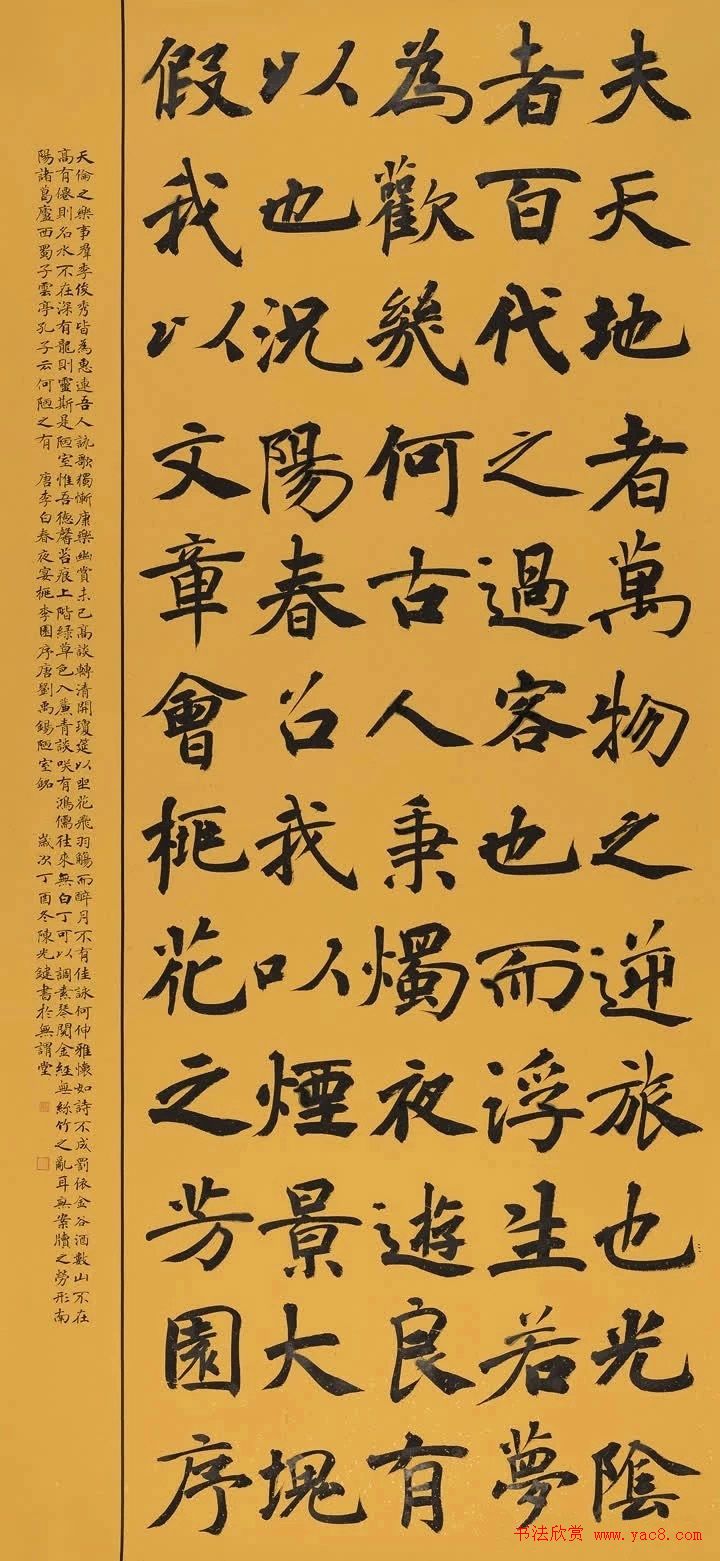 夫天地者萬物之逆旅也光陰
者百代之過客也而浮生若夢
為歡幾何古人秉燭夜遊良有
以也況陽春召我以煙景大塊
假我以文章會桃花之芳園序
天倫之樂事羣季俊秀皆為惠連吾人詠歌獨慚康樂幽賞未已高談轉清開瓊筵以坐花飛羽觴而醉月不有佳詠何伸雅懷如詩不成罰依金谷酒數山不在
高有僊則名水不在深有龍則靈斯是陋室惟吾德馨苔痕上階綠草色入簾青談咲有鴻儒往來無白丁可以調素琴閱金經無絲竹之亂耳無案牘之勞形南
陽諸葛廬西蜀子雲亭孔子云何陋之有 唐李白春夜宴桃李園序唐劉禹錫陋室銘 歲次丁酉冬陳光鍵書於無謂堂
书法欣赏 www.yac8.com